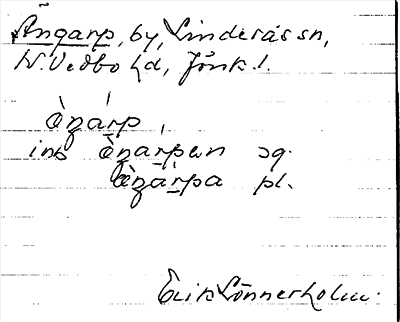 Ängarp, by, Linderås sn,
N. Vedbo hd, Jönk. l.
ὲŋárp
inb ὲŋarpan sg.
ὲŋárpa pl.
Erik Lönnerholm.